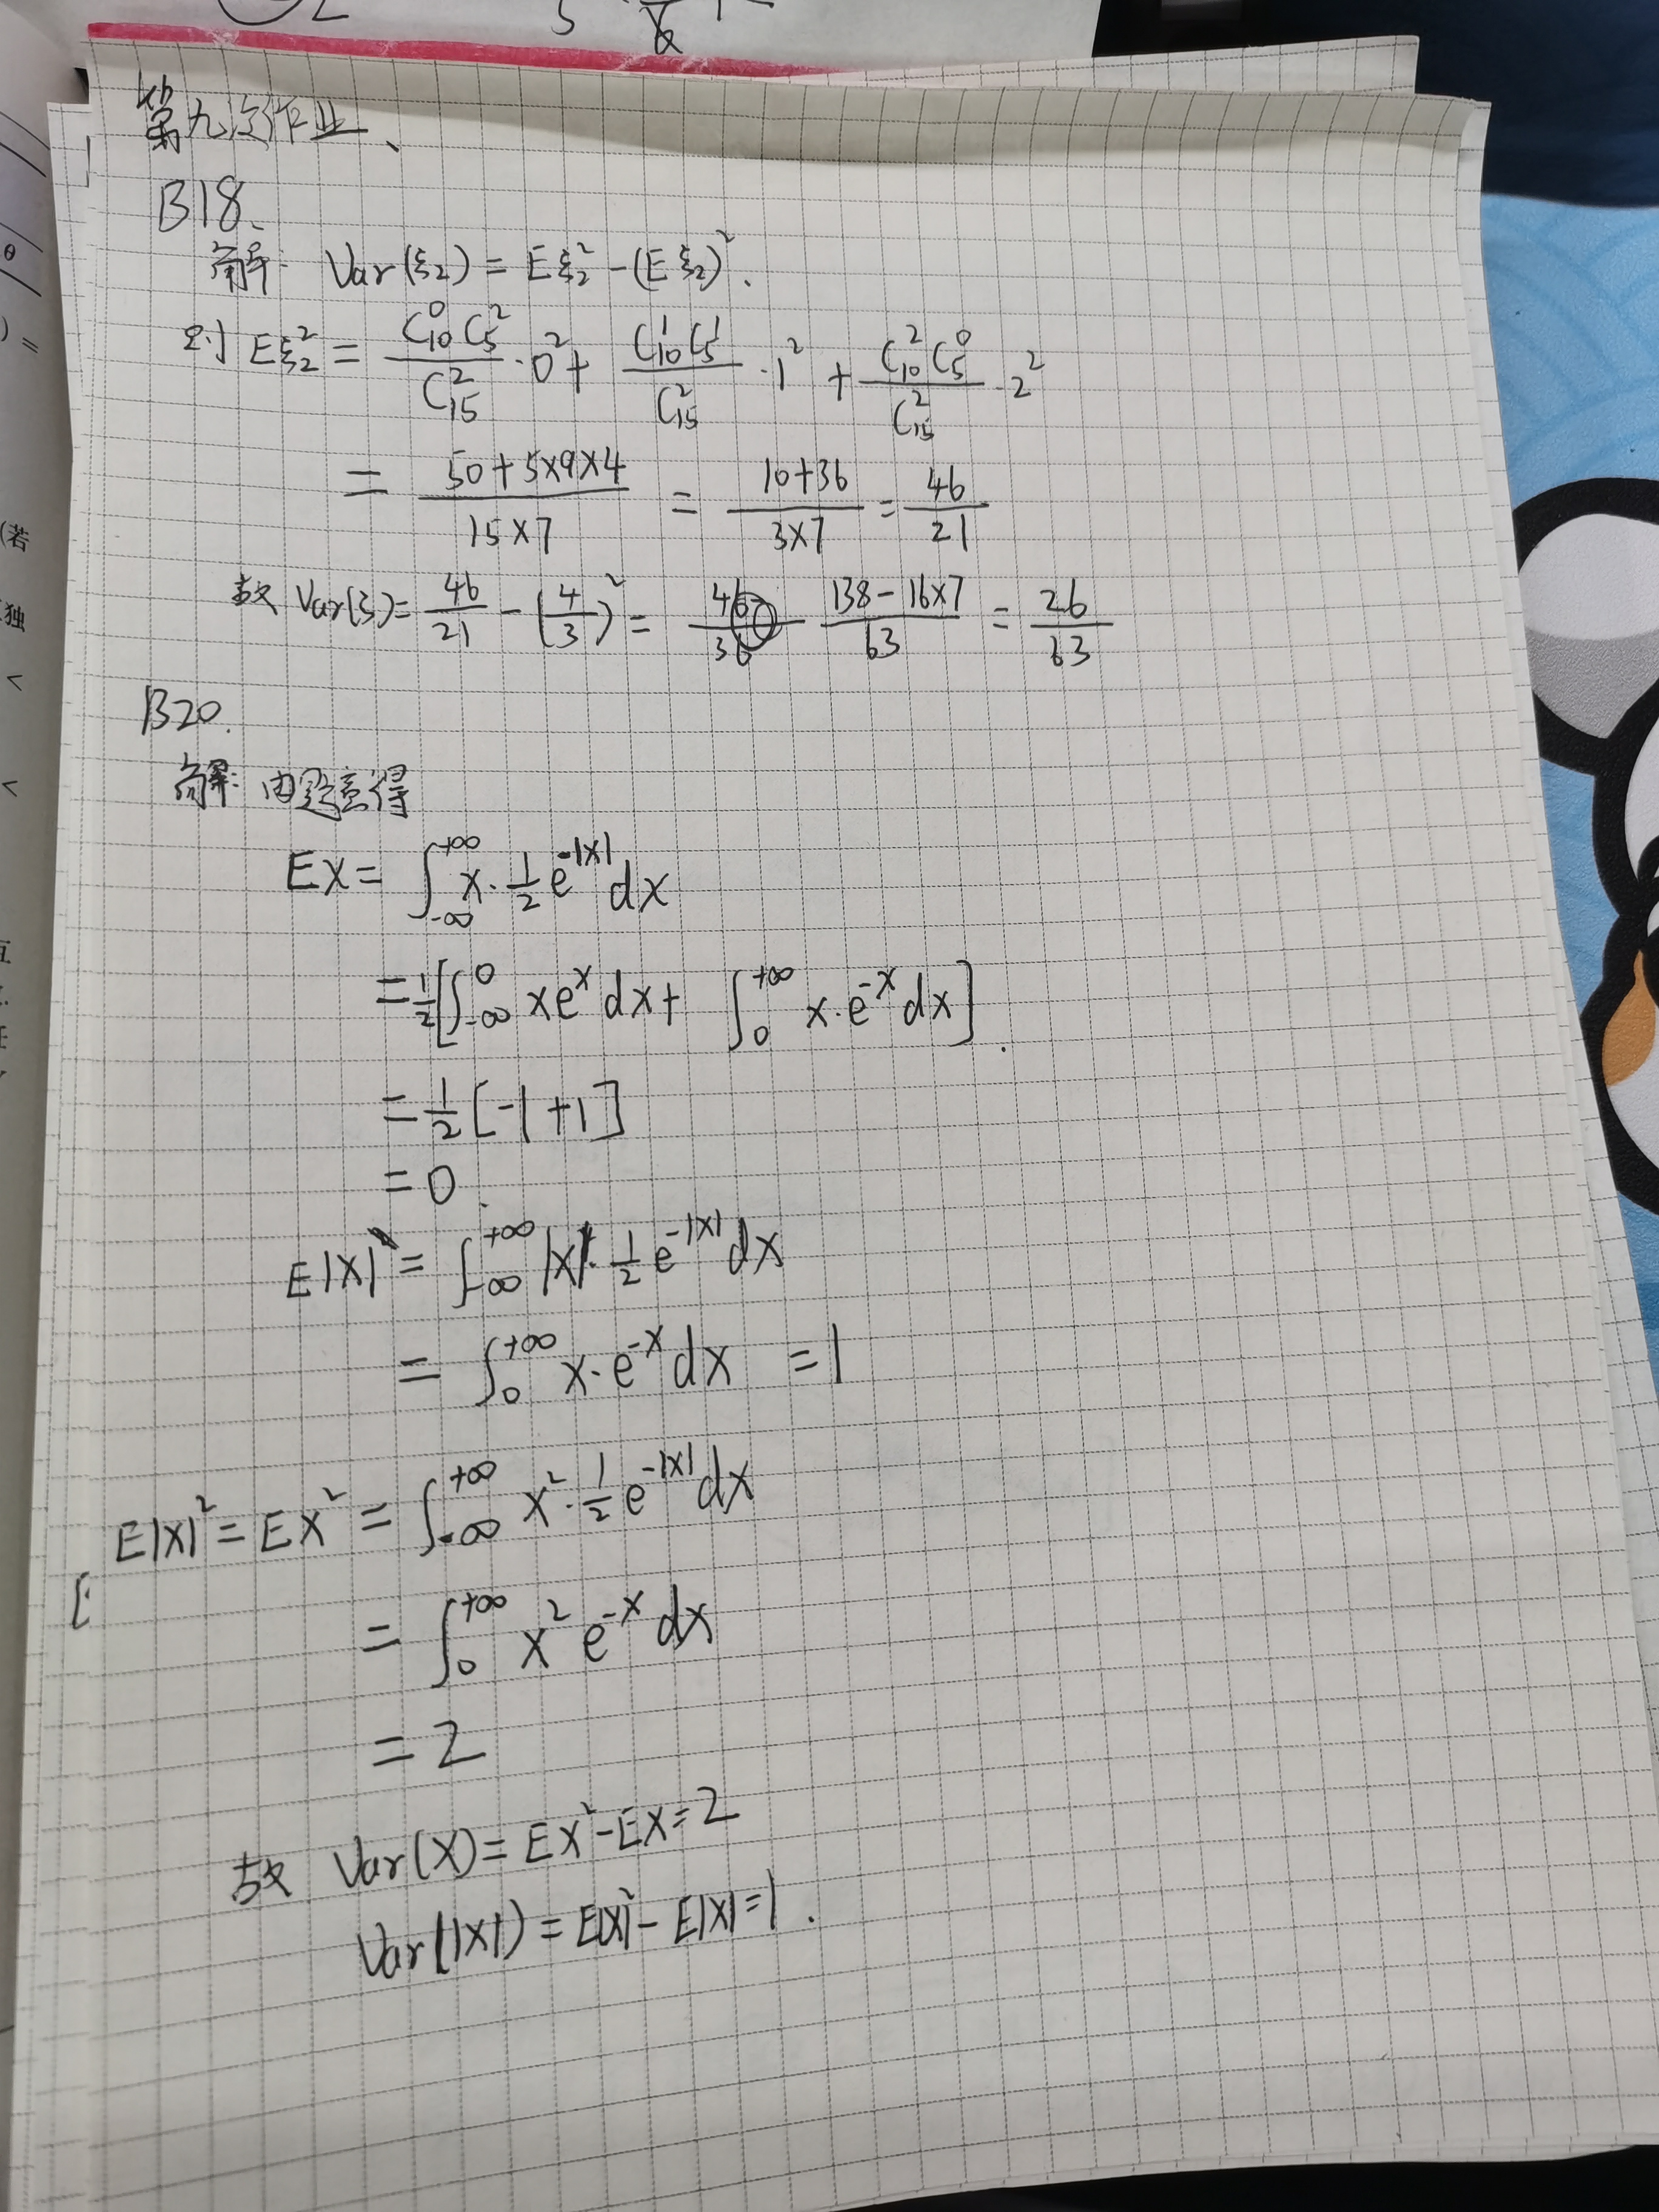 第九次作业、
B18、
解: Var(ξ₂) = Eξ₂² - (Eξ₂)².
则 Eξ₂² = C₁₀⁰C₅²/C₁₅² · 0² + C₁₀¹C₅¹/C₁₅² · 1² + C₁₀²C₅⁰/C₁₅² · 2²
= (50+5×9×4)/(15×7) = (10+36)/(3×7) = 46/21
故 Var(ξ) = 46/21 - (4/3)² = (138-16×7)/63 = 26/63
B20.
解: 由题意得
EX = ∫_{-∞}^{+∞} x·½e^{-|x|}dx
= ½[∫_{-∞}^{0} xe^x dx + ∫_{0}^{+∞} x·e^{-x}dx].
= ½[-1+1]
= 0.
E|X| = ∫_{-∞}^{+∞} |x|·½e^{-|x|}dx
= ∫_{0}^{+∞} x·e^{-x}dx = 1
E|X|² = EX² = ∫_{-∞}^{+∞} x²·½e^{-|x|}dx
= ∫_{0}^{+∞} x²e^{-x}dx
= 2
故 Var(X) = EX²-EX = 2
Var(|X|) = E|X|² - E|X| = 1.
θ
) =
(若
独
<
<